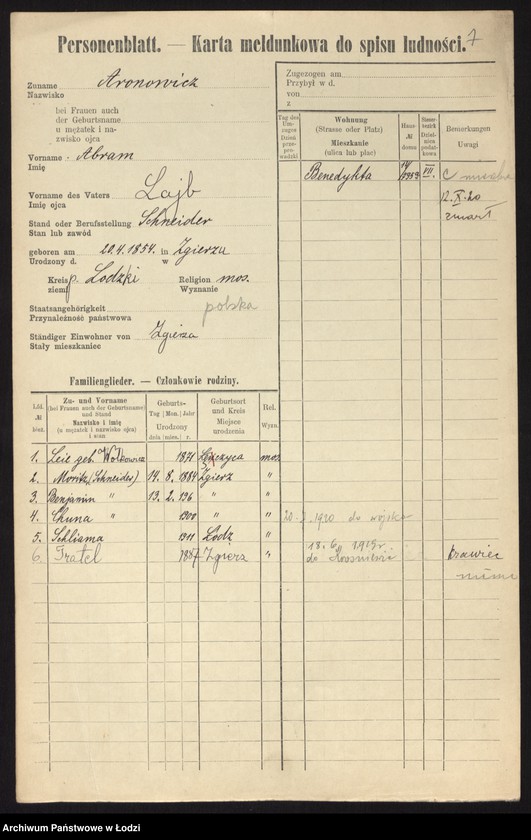 Personenblatt. — Karta meldunkowa do spisu ludności. 7
Zuname Aronowicz
Nazwisko
bei Frauen auch
der Geburtsname
u mężatek i na-
zwisko ojca
Vorname Abram
Imię
Vorname des Vaters Lajb
Imię ojca
Stand oder Berufsstellung Schneider
Stan lub zawód
geboren am 20.4.1854. in Zgierzu
Urodzony d. w
Kreis p. Lodzki Religion mos.
ziemi Wyznanie
Staatsangehörigkeit polska
Przynależność państwowa
Ständiger Einwohner von Zgierza
Stały mieszkaniec
Zugezogen am
Przybył w d.
von
z
Tag des Um-zuges Dzień prze-pro-wadzki
Wohnung
(Strasse oder Platz)
Mieszkanie
(ulica lub plac)
Haus-№ domu
Bemerkungen
Uwagi
Benedykta VII.
12.X.20
zmarł
Familienglieder. — Członkowie rodziny.
Lfd. № bież.
Zu- und Vorname
(bei Frauen auch der Geburtsname)
und Stand
Nazwisko i imię
(u mężatek i nazwisko ojca)
i stan
Geburts-
Tag Mon. Jahr
Urodzony
dnia mies. r.
Geburtsort
und Kreis
Miejsce
urodzenia
Rel.
Wyzn.
1. Leie geb. Wołkowicz 1871 Łęczyca mos.
2. Moritz (Schneider) 14. 8. 1884 Zgierz "
3. Benjamin " 13. 2. 196 " "
4. Chuna " 1900 " " 20- -1920 do wojska
5. Schliama 1911 Lodz "
6. Fratel 1887 Zgierz " 18. 6. 1919r. krawiec
do
Archiwum Państwowe w Łodzi